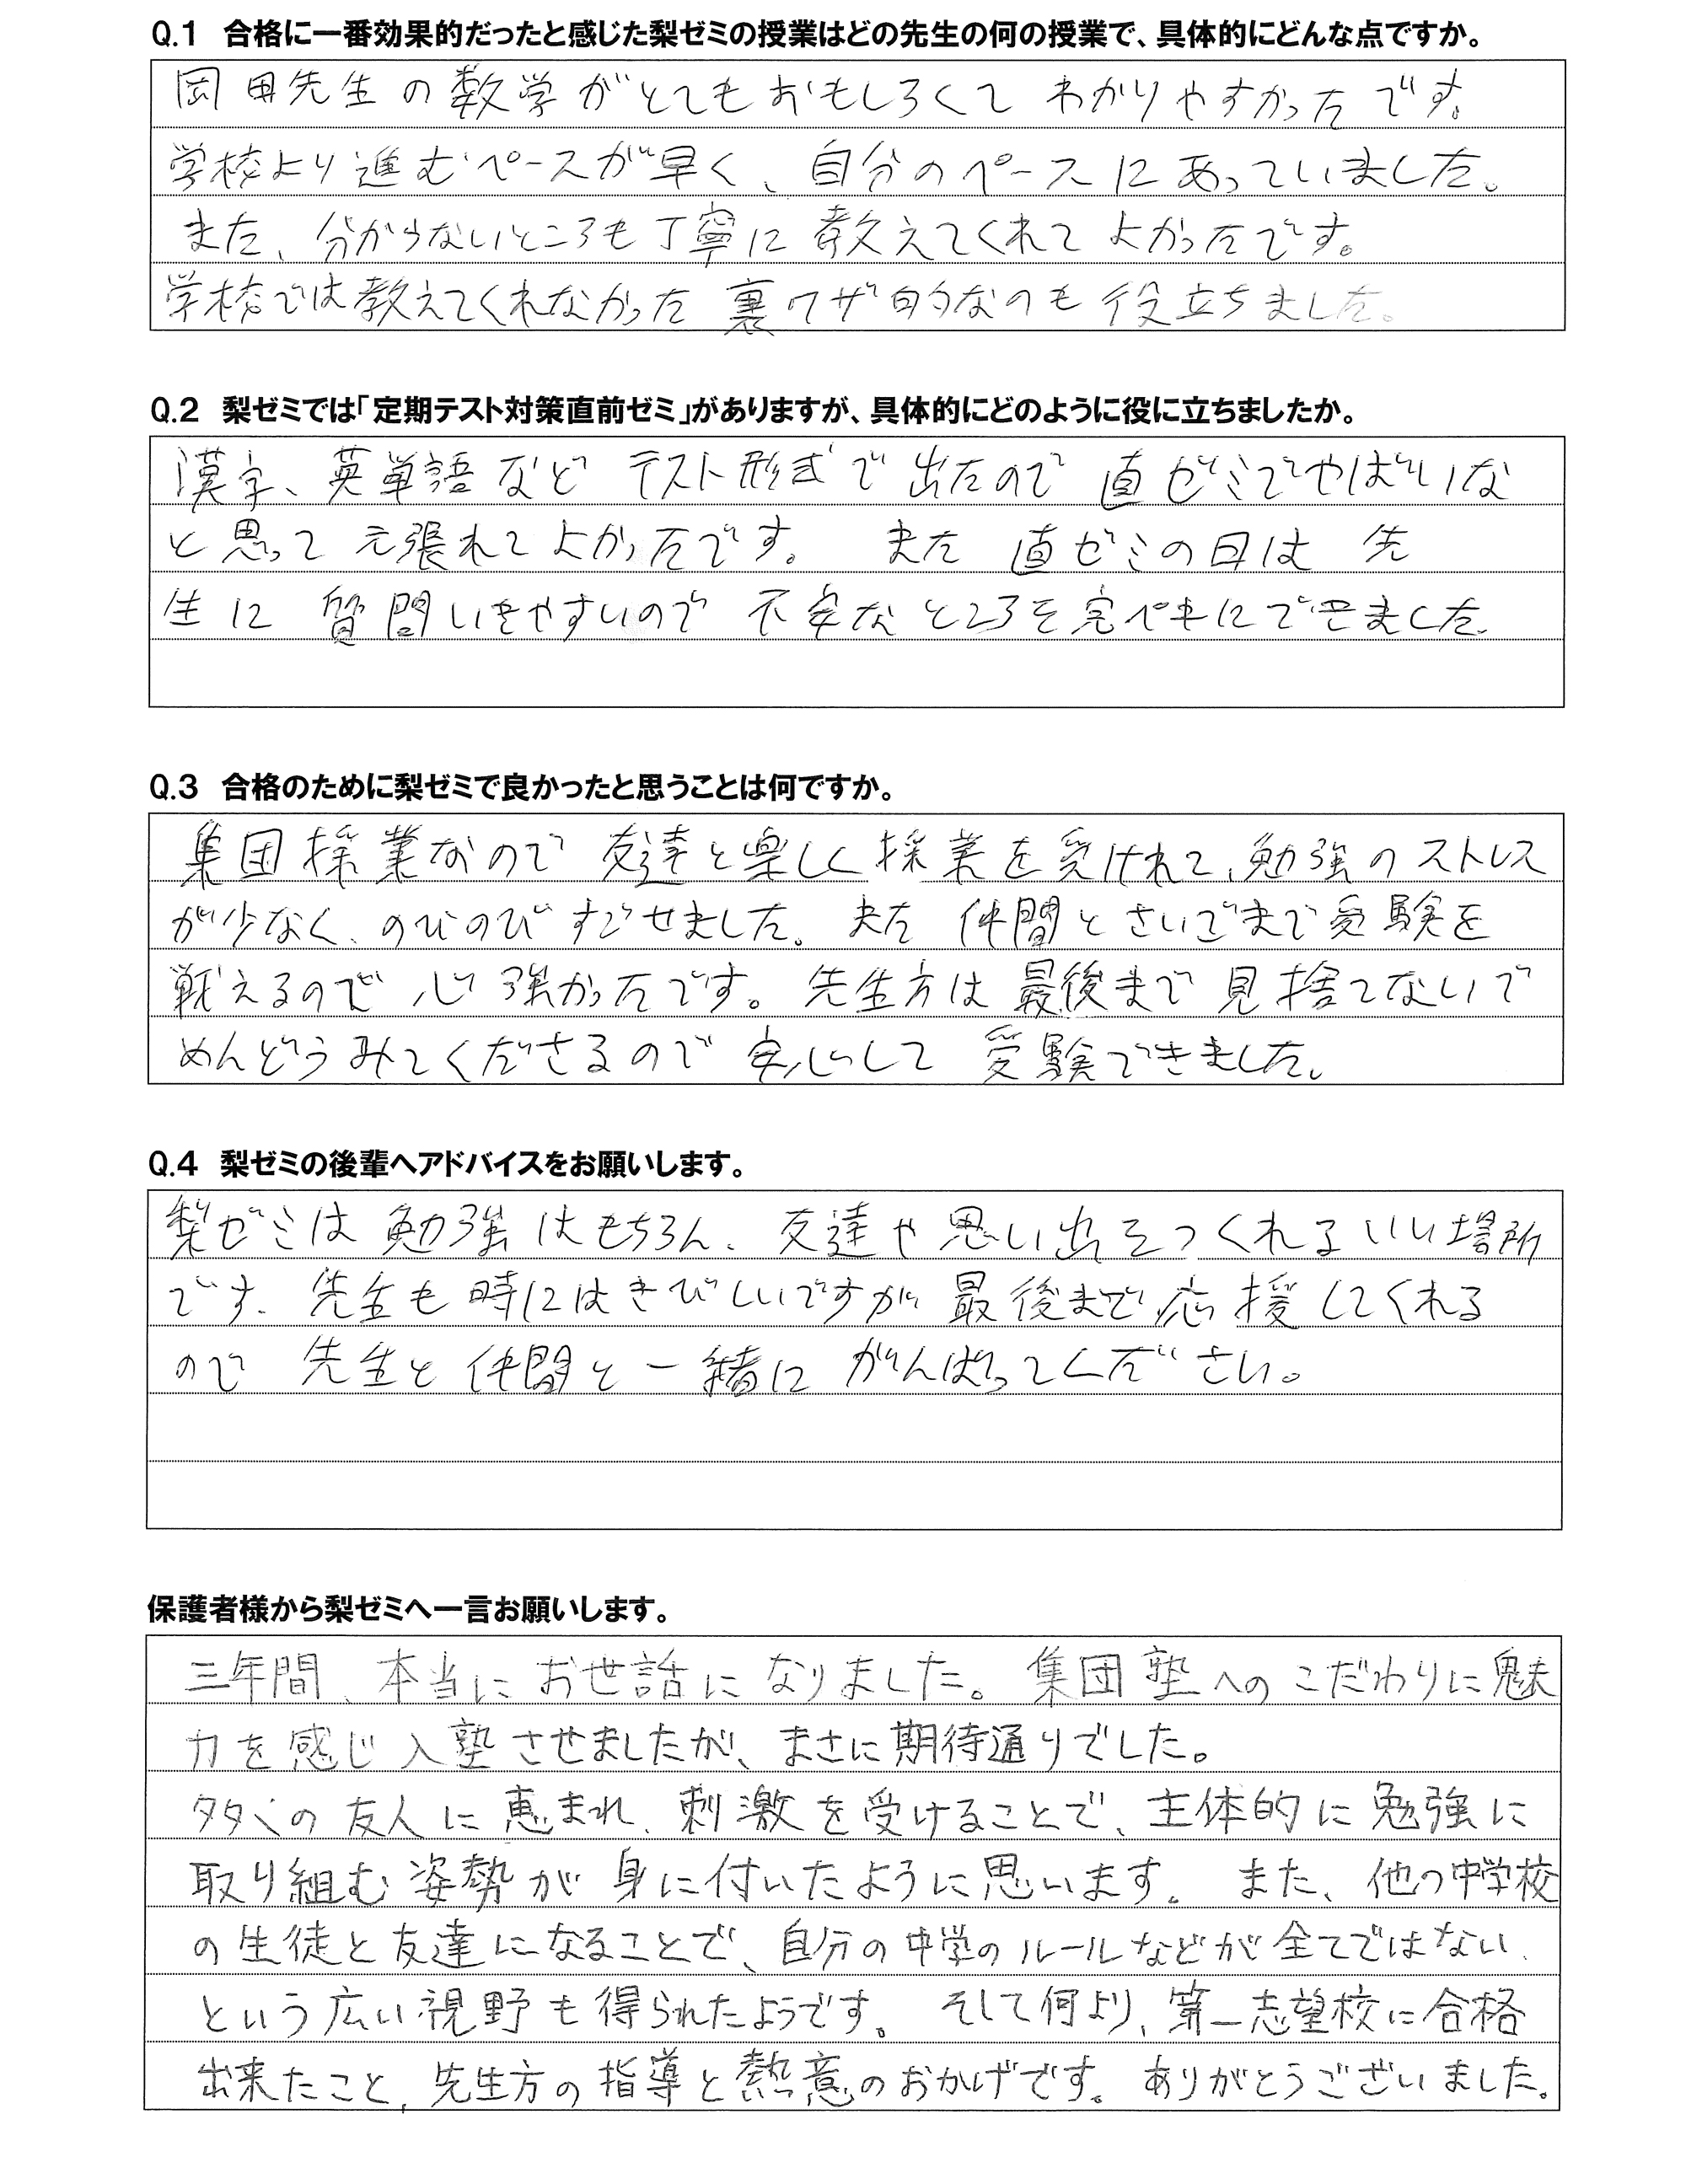 Q.1 合格に一番効果的だったと感じた梨ゼミの授業はどの先生の何の授業で、具体的にどんな点ですか。
岡田先生の数学がとてもおもしろくて わかりやすかったです。
学校より進むペースが早く、自分のペースにあっていました。
また、分からないところも丁寧に教えてくれてよかったです。
学校では教えてくれなかった裏ワザ的なのも役立ちました。
Q.2 梨ゼミでは「定期テスト対策直前ゼミ」がありますが、具体的にどのように役に立ちましたか。
漢字、英単語など テスト形式で出たので 直ゼミでやばいな
と思って 元張れてよかったです。 また 直ゼミの日は 先
生に 質問いきやすいので 不安なところを完ペキにできました。
Q.3 合格のために梨ゼミで良かったと思うことは何ですか。
集団授業なので 友達と楽しく授業を受けれて、勉強のストレス
が少なく、のびのびすごせました。また 仲間とさいごまで受験を
戦えるので心強かったです。先生方は最後まで見捨てないで
めんどうみてくださるので安心して 受験できました。
Q.4 梨ゼミの後輩へアドバイスをお願いします。
梨ゼミは勉強はもちろん、友達や思い出をつくれるいい場所
です。先生も時にはきびしいですが最後まで応援してくれる
ので 先生と仲間と一緒に がんばってください。
保護者様から梨ゼミへ一言お願いします。
三年間、本当にお世話になりました。集団塾へのこだわりに魅
力を感じ入塾させましたが、まさに期待通りでした。
多々の友人に恵まれ、刺激を受けることで、主体的に勉強に
取り組む姿勢が身に付いたように思います。また、他の中学校
の生徒と友達になることで、自分の中学のルールなどが全てではない、
という広い視野も得られたようです。そして何より、第一志望校に合格
出来たこと、先生方の指導と熱意のおかげです。ありがとうございました。